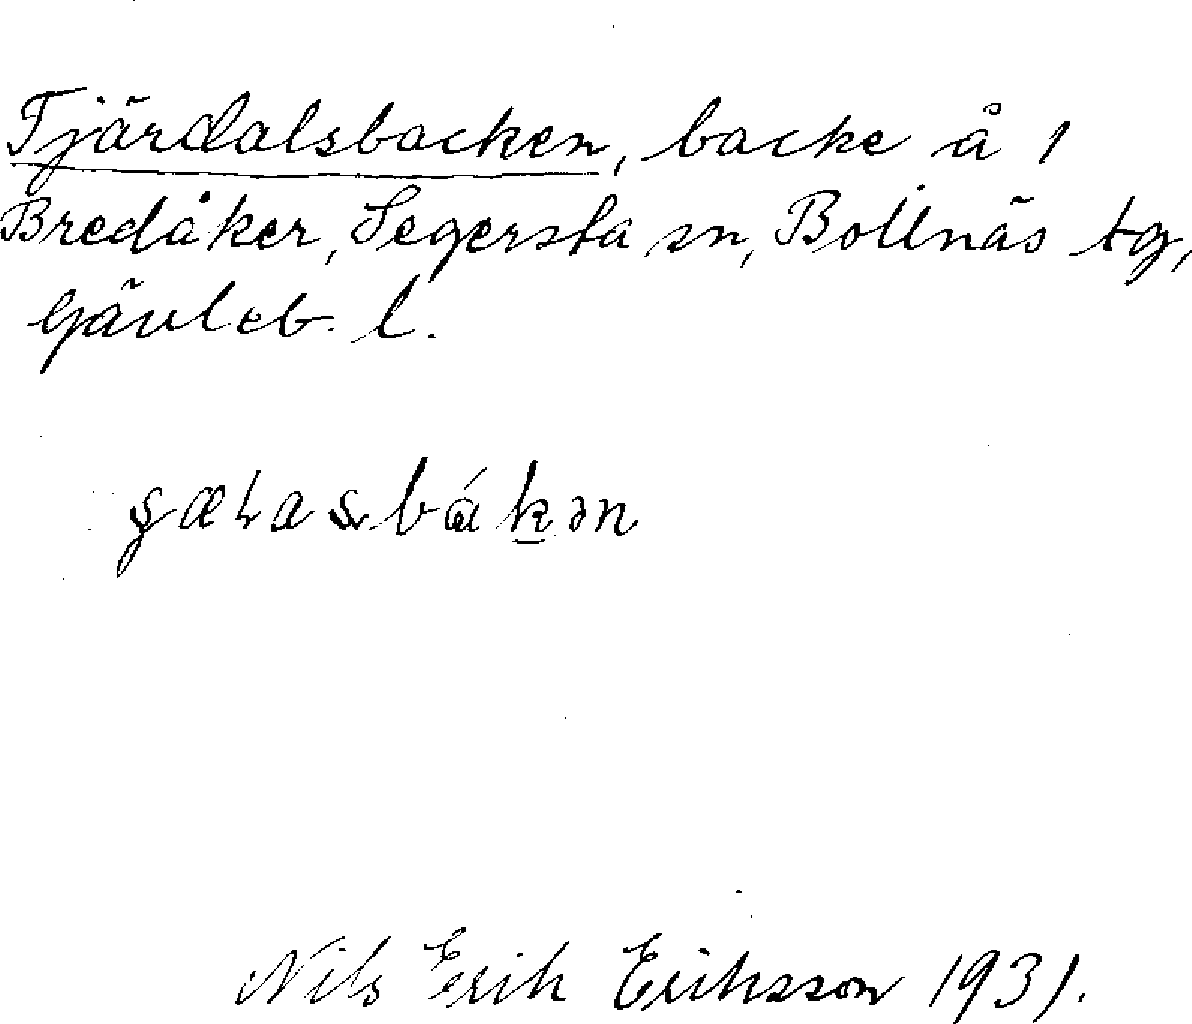 Tjärdalsbacken, backe å 1
Bredåker, Segersta sn, Bollnäs tg,
Gävleb. l.
Nils Erik Eriksson 1931.